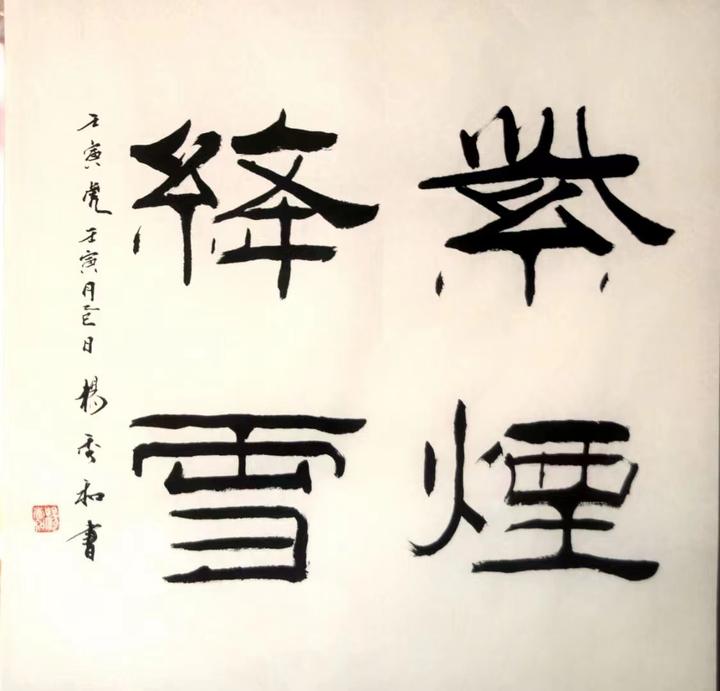 紫煙
絳雪
壬寅虎壬寅月乙巳日楊秀和書